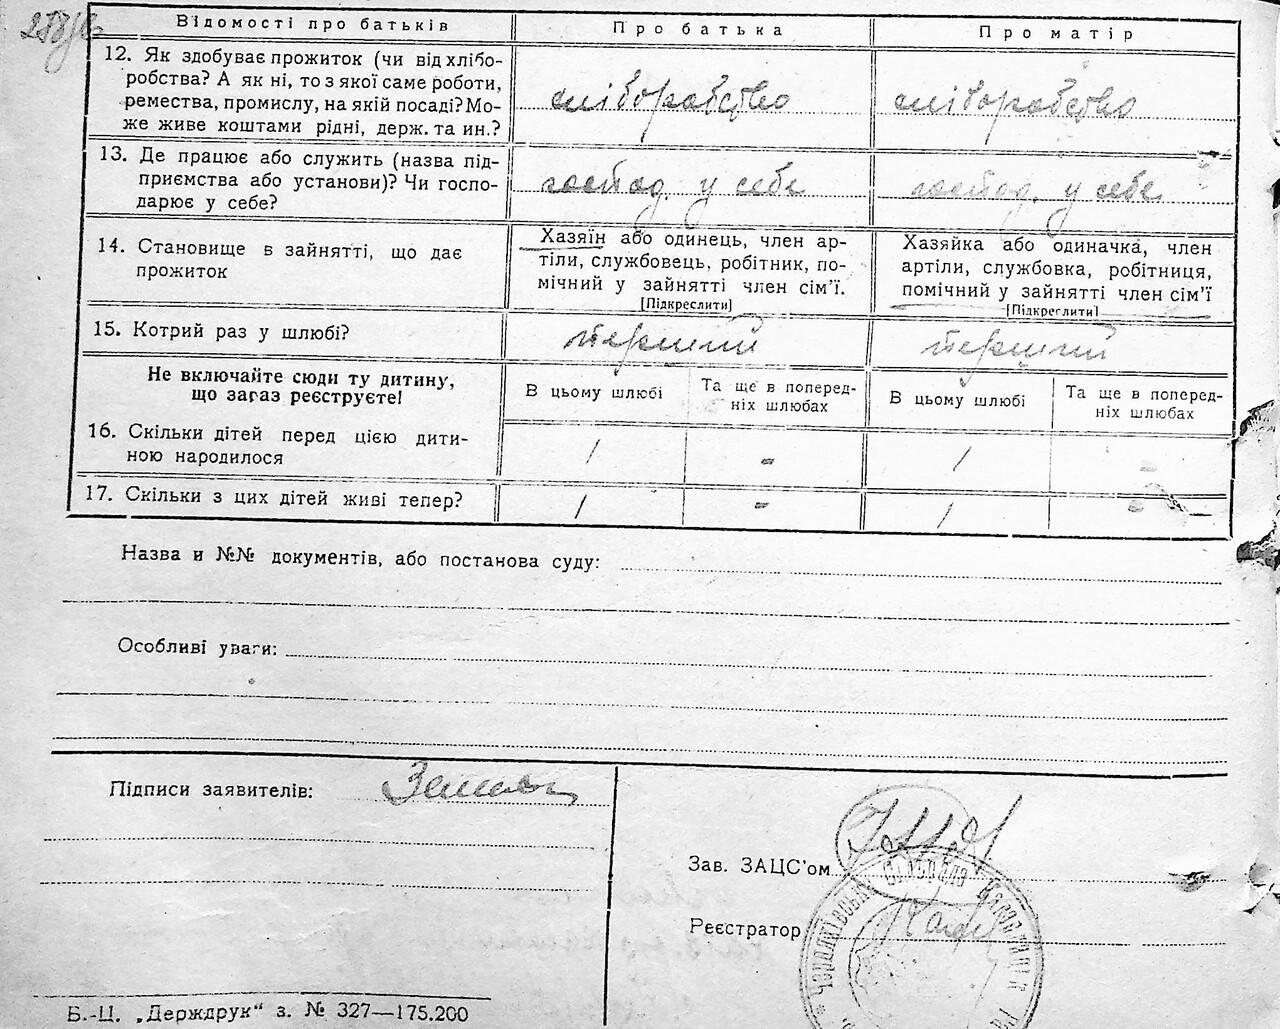 Відомості про батьків Про батька Про матір
12. Як здобуває прожиток (чи від хлібо-
робства? А як ні, то з якої саме роботи,
ремества, промислу, на якій посаді? Мо-
же живе коштами рідні, держ. та ин.?
хліборобство хліборобство
13. Де працює або служить (назва під-
приємства або установи)? Чи госпо-
дарює у себе?
господ. у себе господ. у себе
14. Становище в зайнятті, що дає
прожиток
Хазяїн або одинець, член ар-
тіли, службовець, робітник, по-
мічний у зайнятті член сім'ї.
[Підкреслити]
Хазяйка або одиначка, член
артіли, службовка, робітниця,
помічний у зайнятті член сім'ї
[Підкреслити]
15. Котрий раз у шлюбі? перший перший
Не включайте сюди ту дитину,
що зараз реєструєте!
В цьому шлюбі
Та ще в поперед-
ніх шлюбах
В цьому шлюбі
Та ще в поперед-
ніх шлюбах
16. Скільки дітей перед цією дити-
ною народилося
1 - 1 -
17. Скільки з цих дітей живі тепер? 1 - 1 -
Назва и №№ документів, або постанова суду:
Особливі уваги:
Підписи заявителів:
Зав. ЗАЦС'ом
Реєстратор
Б.-Ц. „Держдрук“ з. № 327—175.200